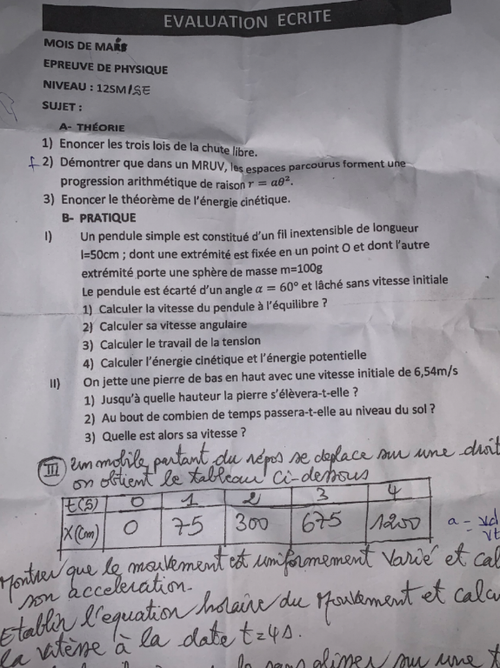 EVALUATION ECRITE
MOIS DE MARS
EPREUVE DE PHYSIQUE
NIVEAU : 12SM/SE
SUJET :
A- THÉORIE
1) Enoncer les trois lois de la chute libre.
2) Démontrer que dans un MRUV, les espaces parcourus forment une
progression arithmétique de raison r = aθ².
3) Enoncer le théorème de l'énergie cinétique.
B- PRATIQUE
I) Un pendule simple est constitué d'un fil inextensible de longueur
l=50cm ; dont une extrémité est fixée en un point O et dont l'autre
extrémité porte une sphère de masse m=100g
Le pendule est écarté d'un angle α = 60° et lâché sans vitesse initiale
1) Calculer la vitesse du pendule à l'équilibre ?
2) Calculer sa vitesse angulaire
3) Calculer le travail de la tension
4) Calculer l'énergie cinétique et l'énergie potentielle
II) On jette une pierre de bas en haut avec une vitesse initiale de 6,54m/s
1) Jusqu'à quelle hauteur la pierre s'élèvera-t-elle ?
2) Au bout de combien de temps passera-t-elle au niveau du sol ?
3) Quelle est alors sa vitesse ?
III Un mobile partant du répos se deplace sur une droit
on obtient le tableau ci-dessous
t(s) 0 1 2 3 4
X(cm) 0 75 300 675 1200
a =
Montrer que le mouvement est uniformement varié et cal
son acceleration.
Etablir l'equation horaire du Mouvement et calcu
la vitèsse à la date t=4s.
sans glisser sur une